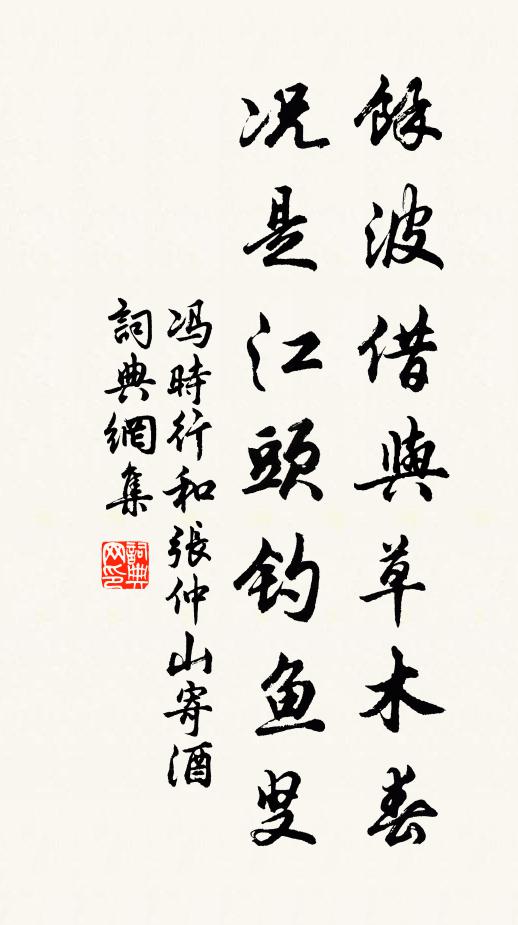 餘波借與草木春
况是江頭釣鱼叟
冯時行和張仲山寄酒
詞典網集
詞典网印